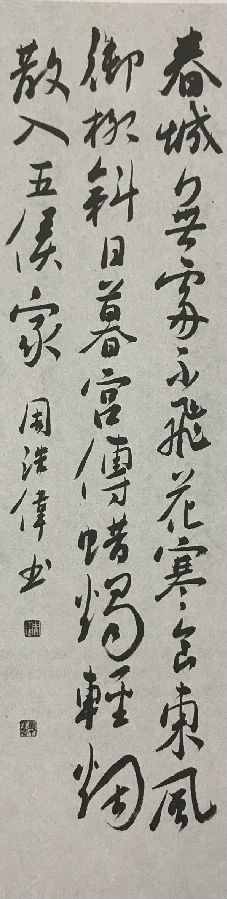 春城無處不飛花寒食東風
御柳斜日暮宮傳蜡燭輕烟
散入五侯家 周浩偉书